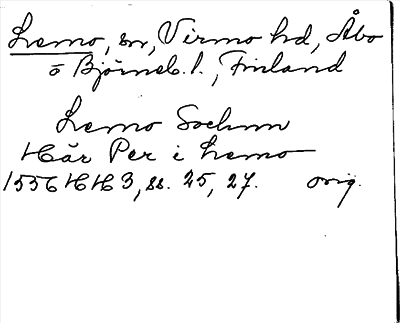 Lemo, sn, Virmo hd, Åbo
o Björneb. l., Finland
Lemo Sochnn
Häär Per i Lemo
1556 HH 3, ss. 25, 27. orig.